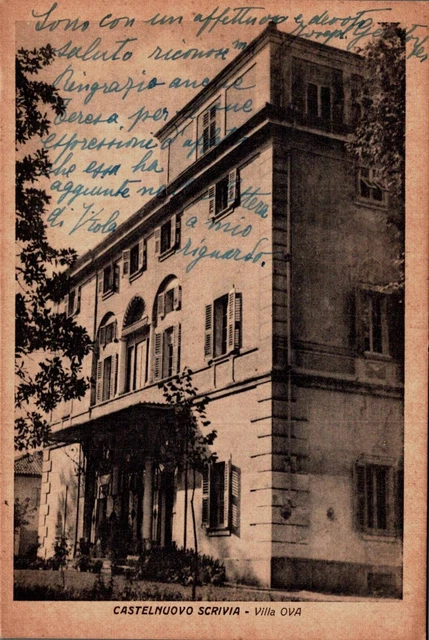 Sono con un affettuoso e devoto
saluto riconosc.m
Ringrazio anche
Teresa per le sue
espressioni d'affetto
che essa ha
aggiunte
di Viola a mio
riguardo.
CASTELNUOVO SCRIVIA - Villa OVA